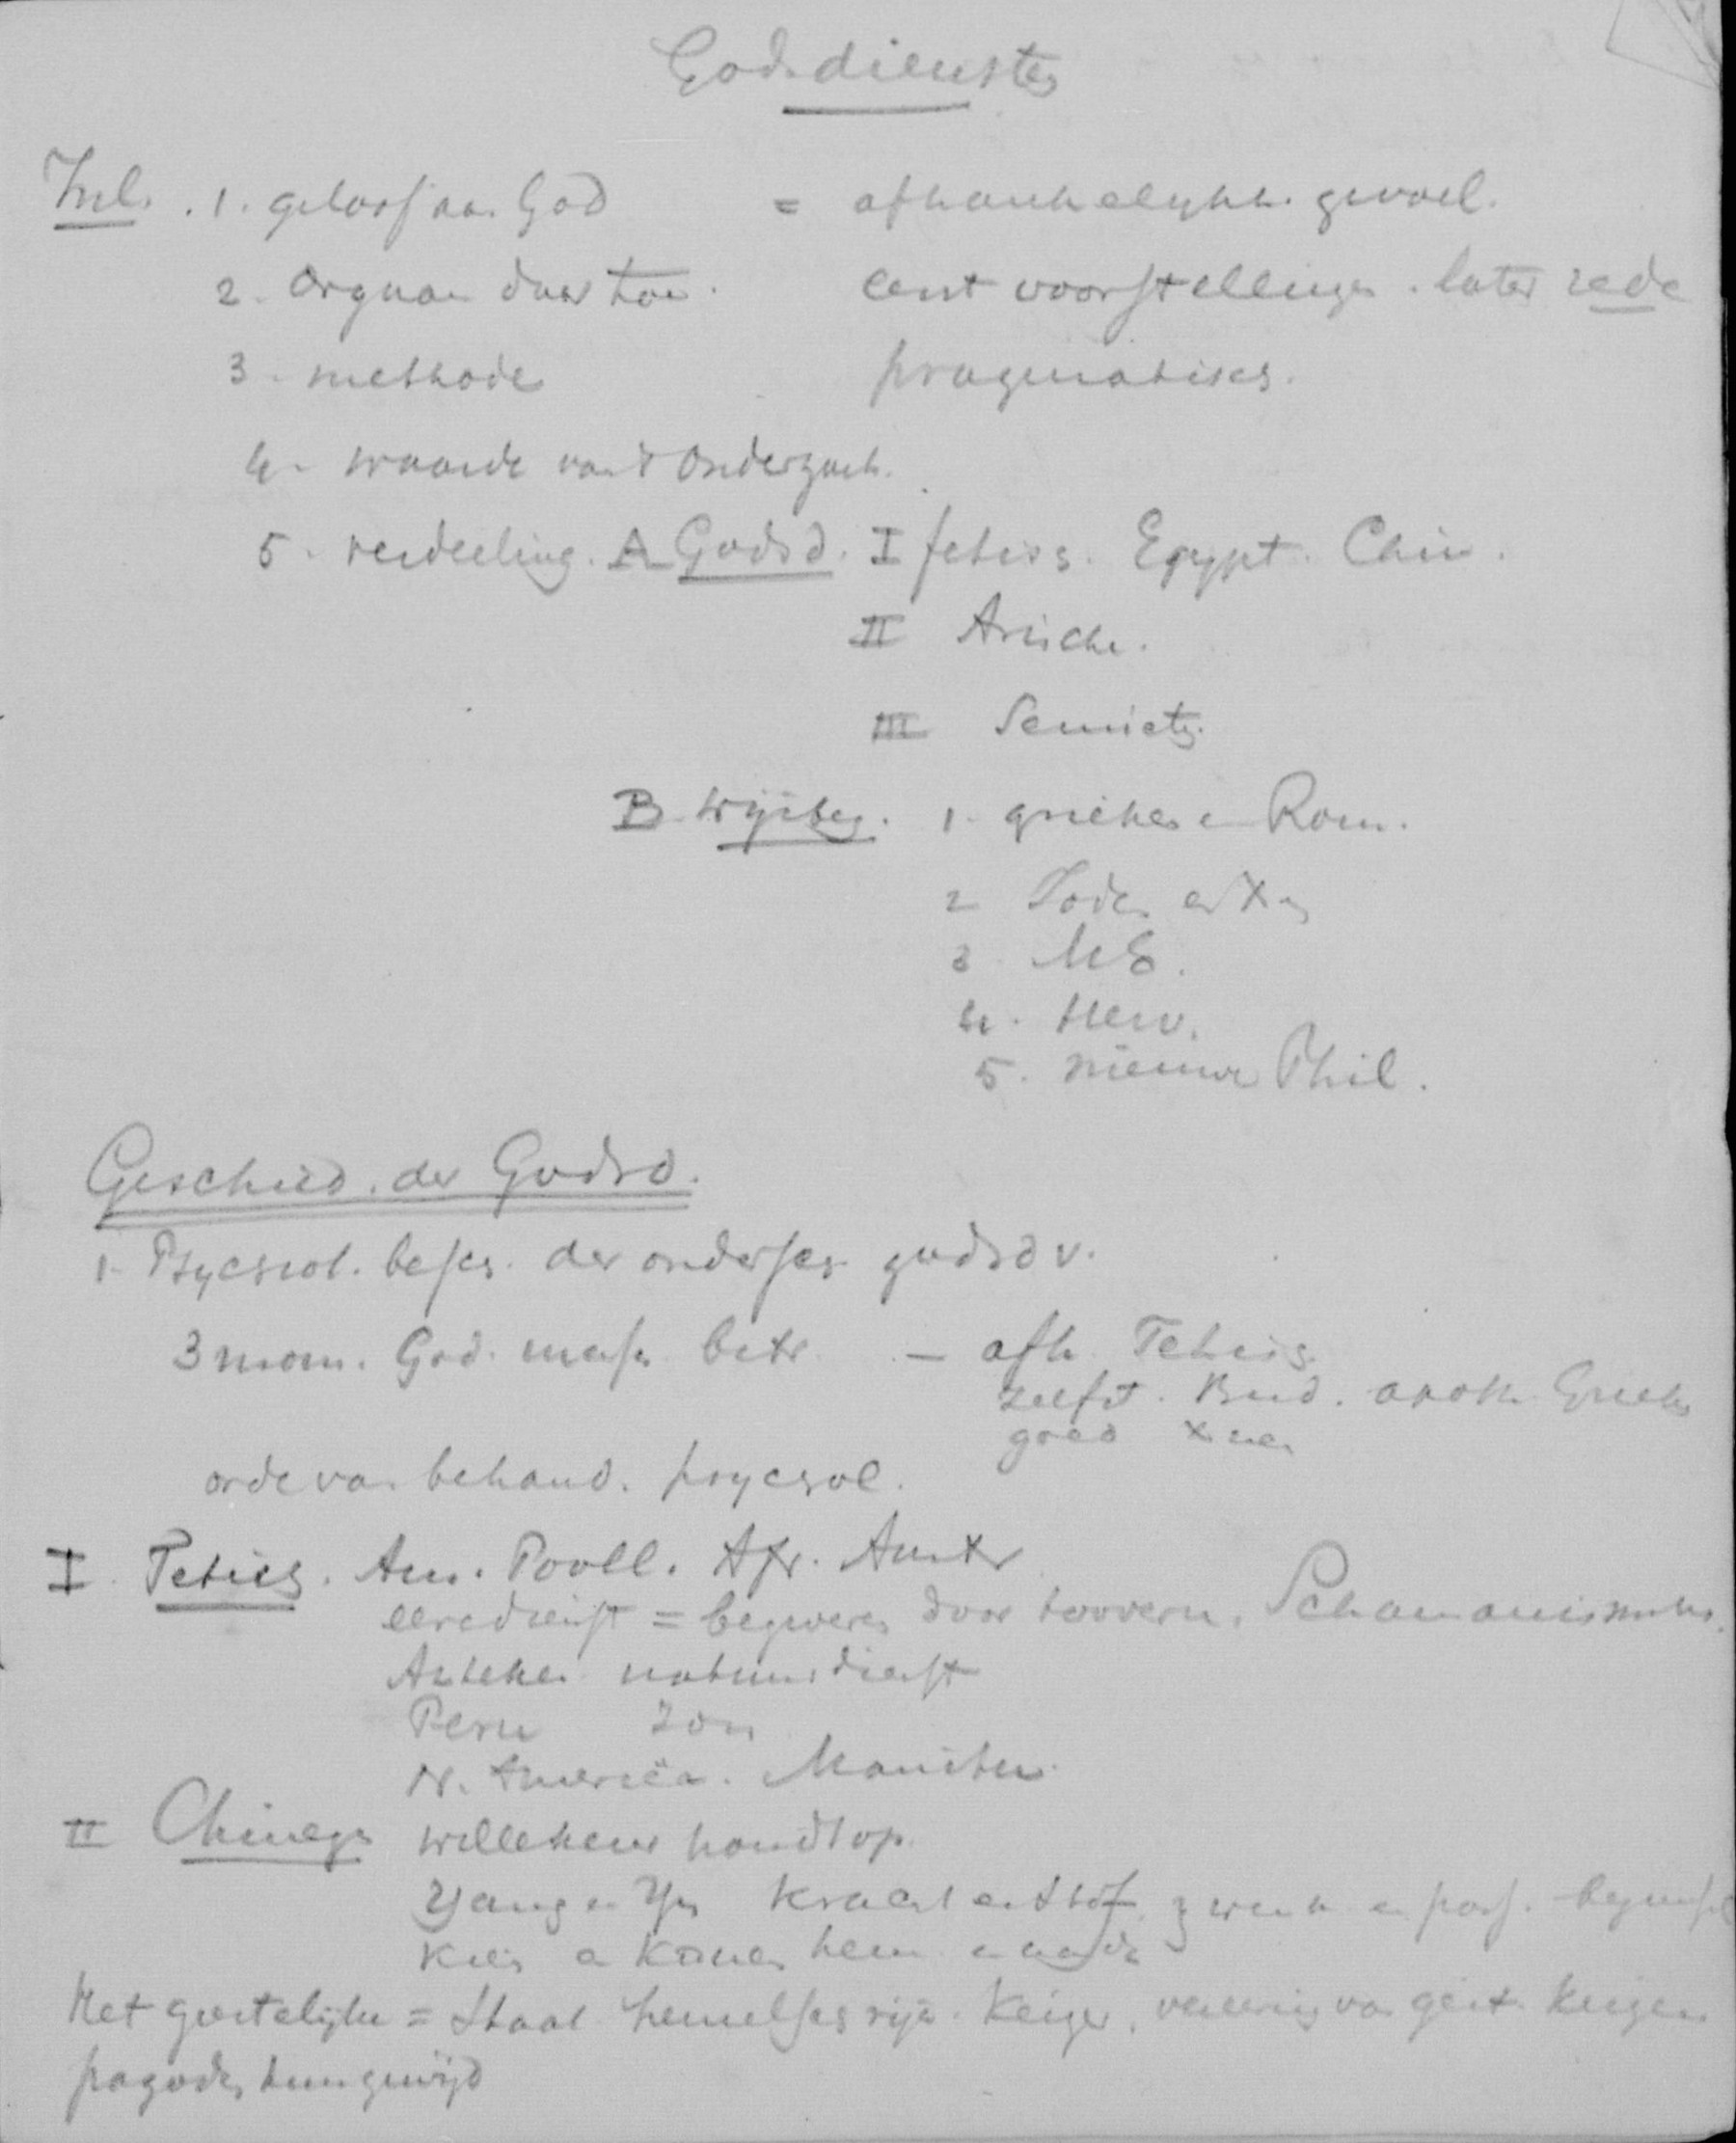 Godsdiensten
Inl. 1. geloof aan God = afhankelijkh. gevoel.
2. Orgaan daartoe. eerst voorstellingen. later rede
3. methode pragmatisch.
4. waarde van 't onderzoek.
5. verdeeling. A Godsd. I fetiss. Egypt. Chin.
II Arische.
III Semieten.
B. Wijsbeg. 1. grieken en Rom.
2 Joden en Xen
3. ME.
4. Herv.
5. nieuwe Phil.
Geschied. der Godsd.
1. Psychol. besch. der onderscn godsd v.
3 mom. God. mensch betr. - afh. Fetiss.
zelfst. Bud. Grieken
goed Xnen
orde van behand. psychol.
I. Fetisch. Am. Pooll. Afr. Austr
eeredienst = bezweren door toovern. Schamanismus.
Azteken natuurdienst
Peru Zon
N. America. Manitu.
II Chinezen willekeur houdt op.
Yang en Yn kracht en stof, werk. en pass. beginsel
hem. en aarde
Het geestelijke = Staat hemelsch rijk. Keizer. vereering van geest. keizers
pagoden hun gewijd